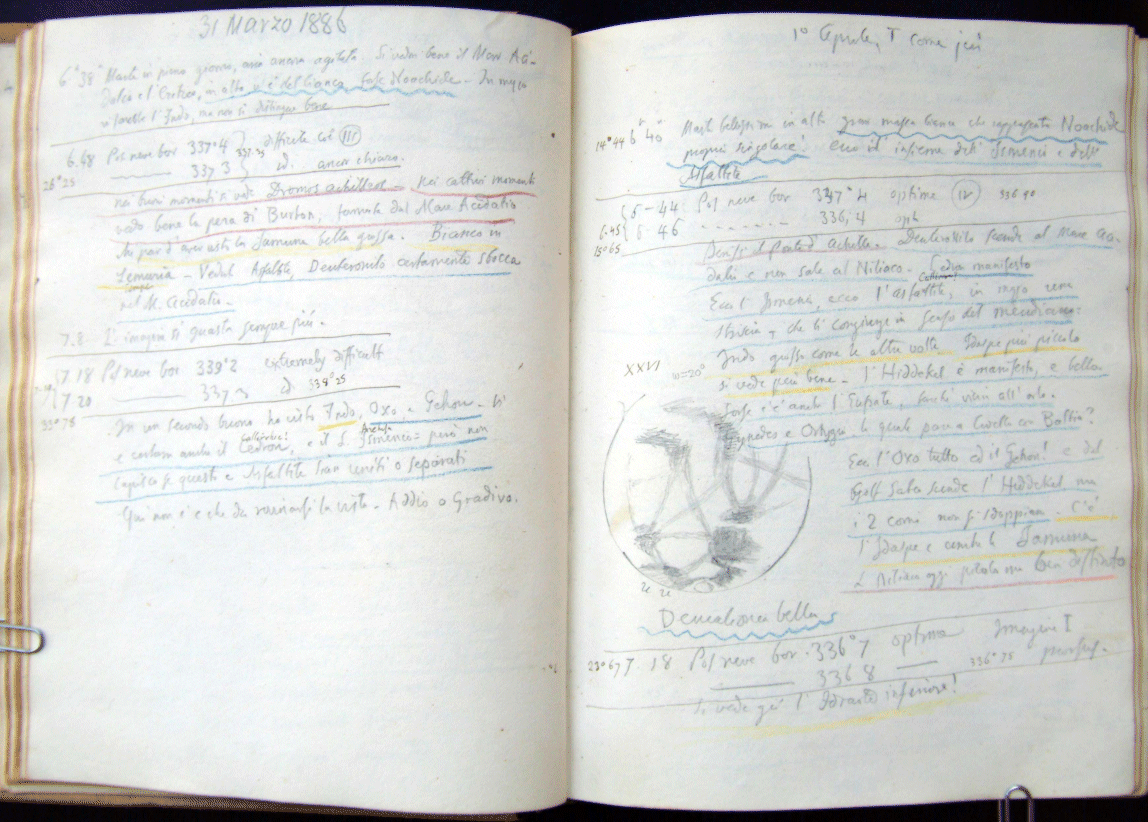 31 Marzo 1886
6h 38m Marte in pieno giorno, aria ancora agitata. Si vedon bene il Mare Aci-
dalio e l'Eritreo, in alto vi è del bianco, forse Noachide - In mezzo
l'Indo, ma non si distingue bene
6.48 Pol neve bor 337°4 difficile così III
337 3 id. ancor chiaro.
337.35
26°25
nei buoni momenti si vede Dromos achilleos - nei cattivi momenti
vedo bene la pera di Burton, formata dal Mare Acidalio
Mi par d'aver visto la Jamuna bella grossa. Bianco in
Lemuria - Veduti Asfaltite, Deuteronilo certamente sbocca
nel M. Acidalio.
7.8 L'imagine si guasta sempre più.
7.18 Pol neve bor 339°2 extremely difficult
7 20 337 3 id 338°25
33°75
In un secondo buono ho visto Indo, Oxo, e Gehon. Vi
è certam anche il Cedron, e il Ismenio: però non
capisco se questo e Asfaltite sian uniti o separati
Qui non c'è che da rovinarsi la vista. Addio o Gradivo.
1° Aprile, T come jeri
14°44 6 40 Marte bellissimo in alto gran massa bianca che rappresenta Noachide
proprio singolare! ecco il insieme dell'Ismenio e dell'
Asfaltite
6-44 Pol neve bor 337°4 optime IV 336 90
6.45 6-46 336,4 opt
15°65
Densiss il ponte d'Achille. Deuteronilo scende al Mare Aci-
dalio e non sale al Niliaco. Cedron manifesto
Ecco l'Ismenio, ecco l'asfaltite, in mezzo vena
che li congiunge in senso del meridiano:
Indo grosso come le altre volte Idaspe più piccolo
si vede più bene. l'Hiddekel è manifesto, e bello
forse c'è anche l'Eufrate, benchè vicin all'orlo.
XXVI ω=20°
e Ortygia, la quale pare a livello con Baltia?
Ecco l'Oxo tutto ed il Gehon! e dal
Golf Sabeo scende l'Hiddekel ma
i 2 corni non si sdoppian. C'è
l'Idaspe e anche la Jamuna
L Niliaco oggi piccolo ma ben distinto
Deucalionea bella
23°67 7 18 Pol neve bor 336°7 optima Imagine I
336 8 336°75
Si vede già l'Idraote inferiore!